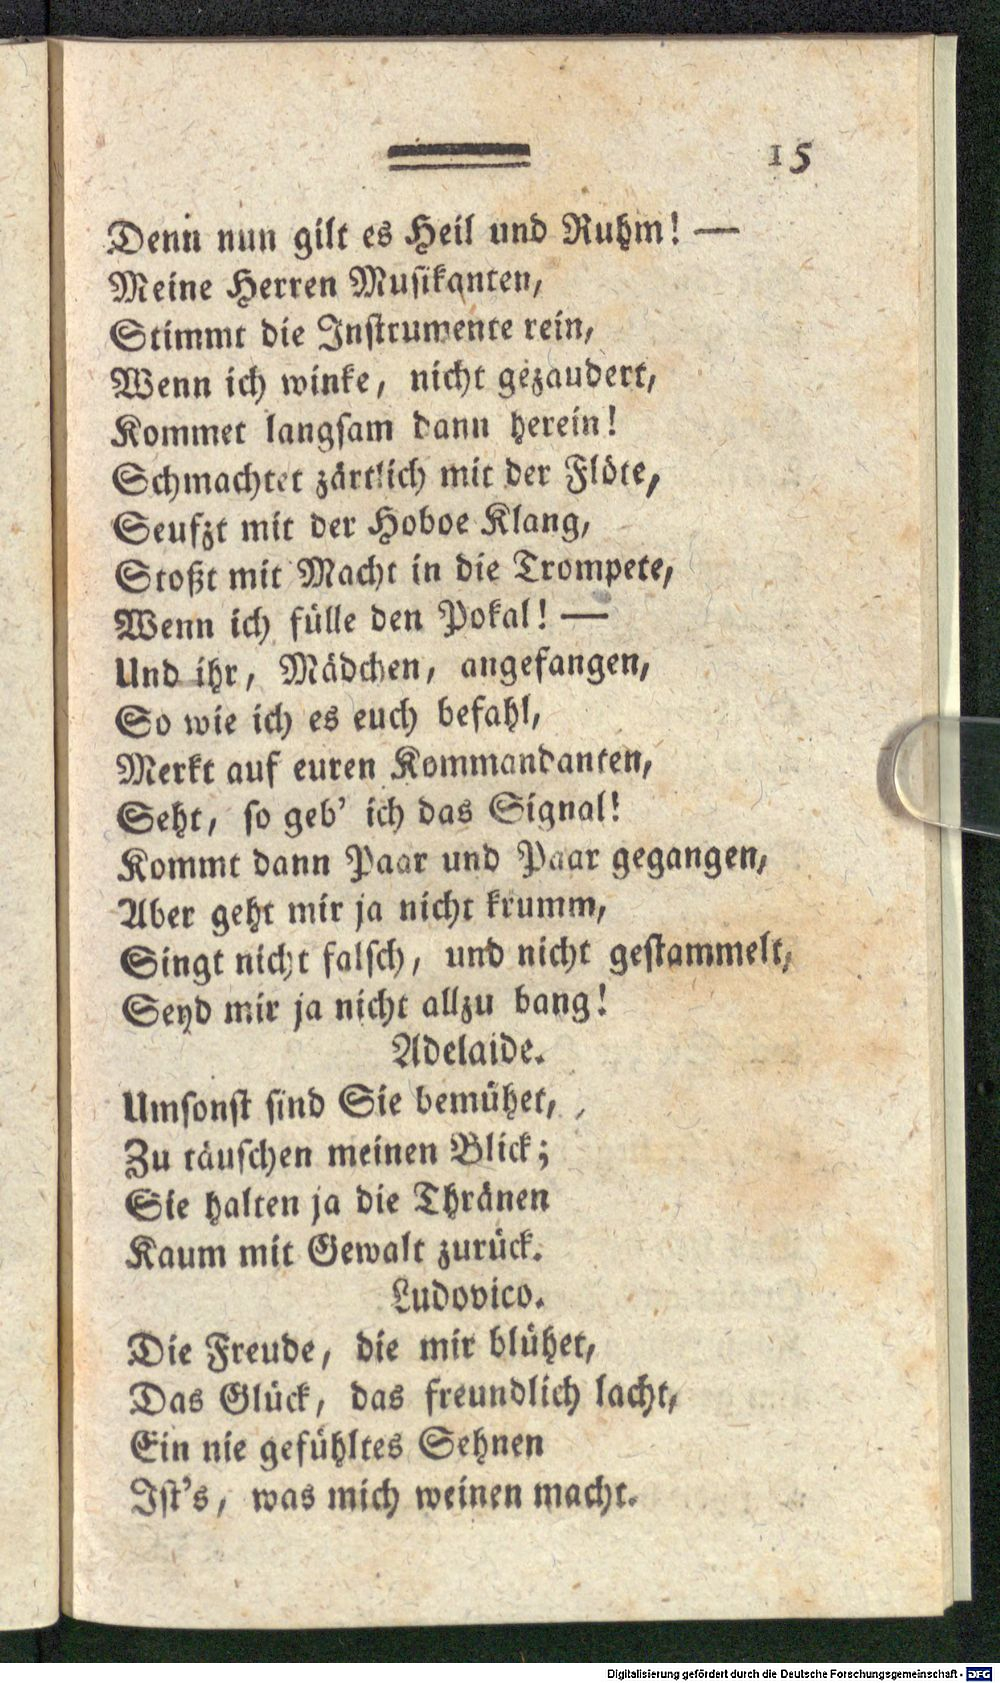 15
Denn nun gilt es Heil und Ruhm! —
Meine Herren Musikanten,
Stimmt die Instrumente rein,
Wenn ich winke, nicht gezaudert,
Kommet langsam dann herein!
Schmachtet zärtlich mit der Flöte,
Seufzt mit der Hoboe Klang,
Stoßt mit Macht in die Trompete,
Wenn ich fülle den Pokal! —
Und ihr, Mädchen, angefangen,
So wie ich es euch befahl,
Merkt auf euren Kommandanten,
Seht, so geb' ich das Signal!
Kommt dann Paar und Paar gegangen,
Aber geht mir ja nicht krumm,
Singt nicht falsch, und nicht gestammelt,
Seyd mir ja nicht allzu bang!
Adelaide.
Umsonst sind Sie bemühet,
Zu täuschen meinen Blick;
Sie halten ja die Thränen
Kaum mit Gewalt zurück.
Ludovico.
Die Freude, die mir blühet,
Das Glück, das freundlich lacht,
Ein nie gefühltes Sehnen
Ist's, was mich weinen macht.
Digitalisierung gefördert durch die Deutsche Forschungsgemeinschaft - DFG